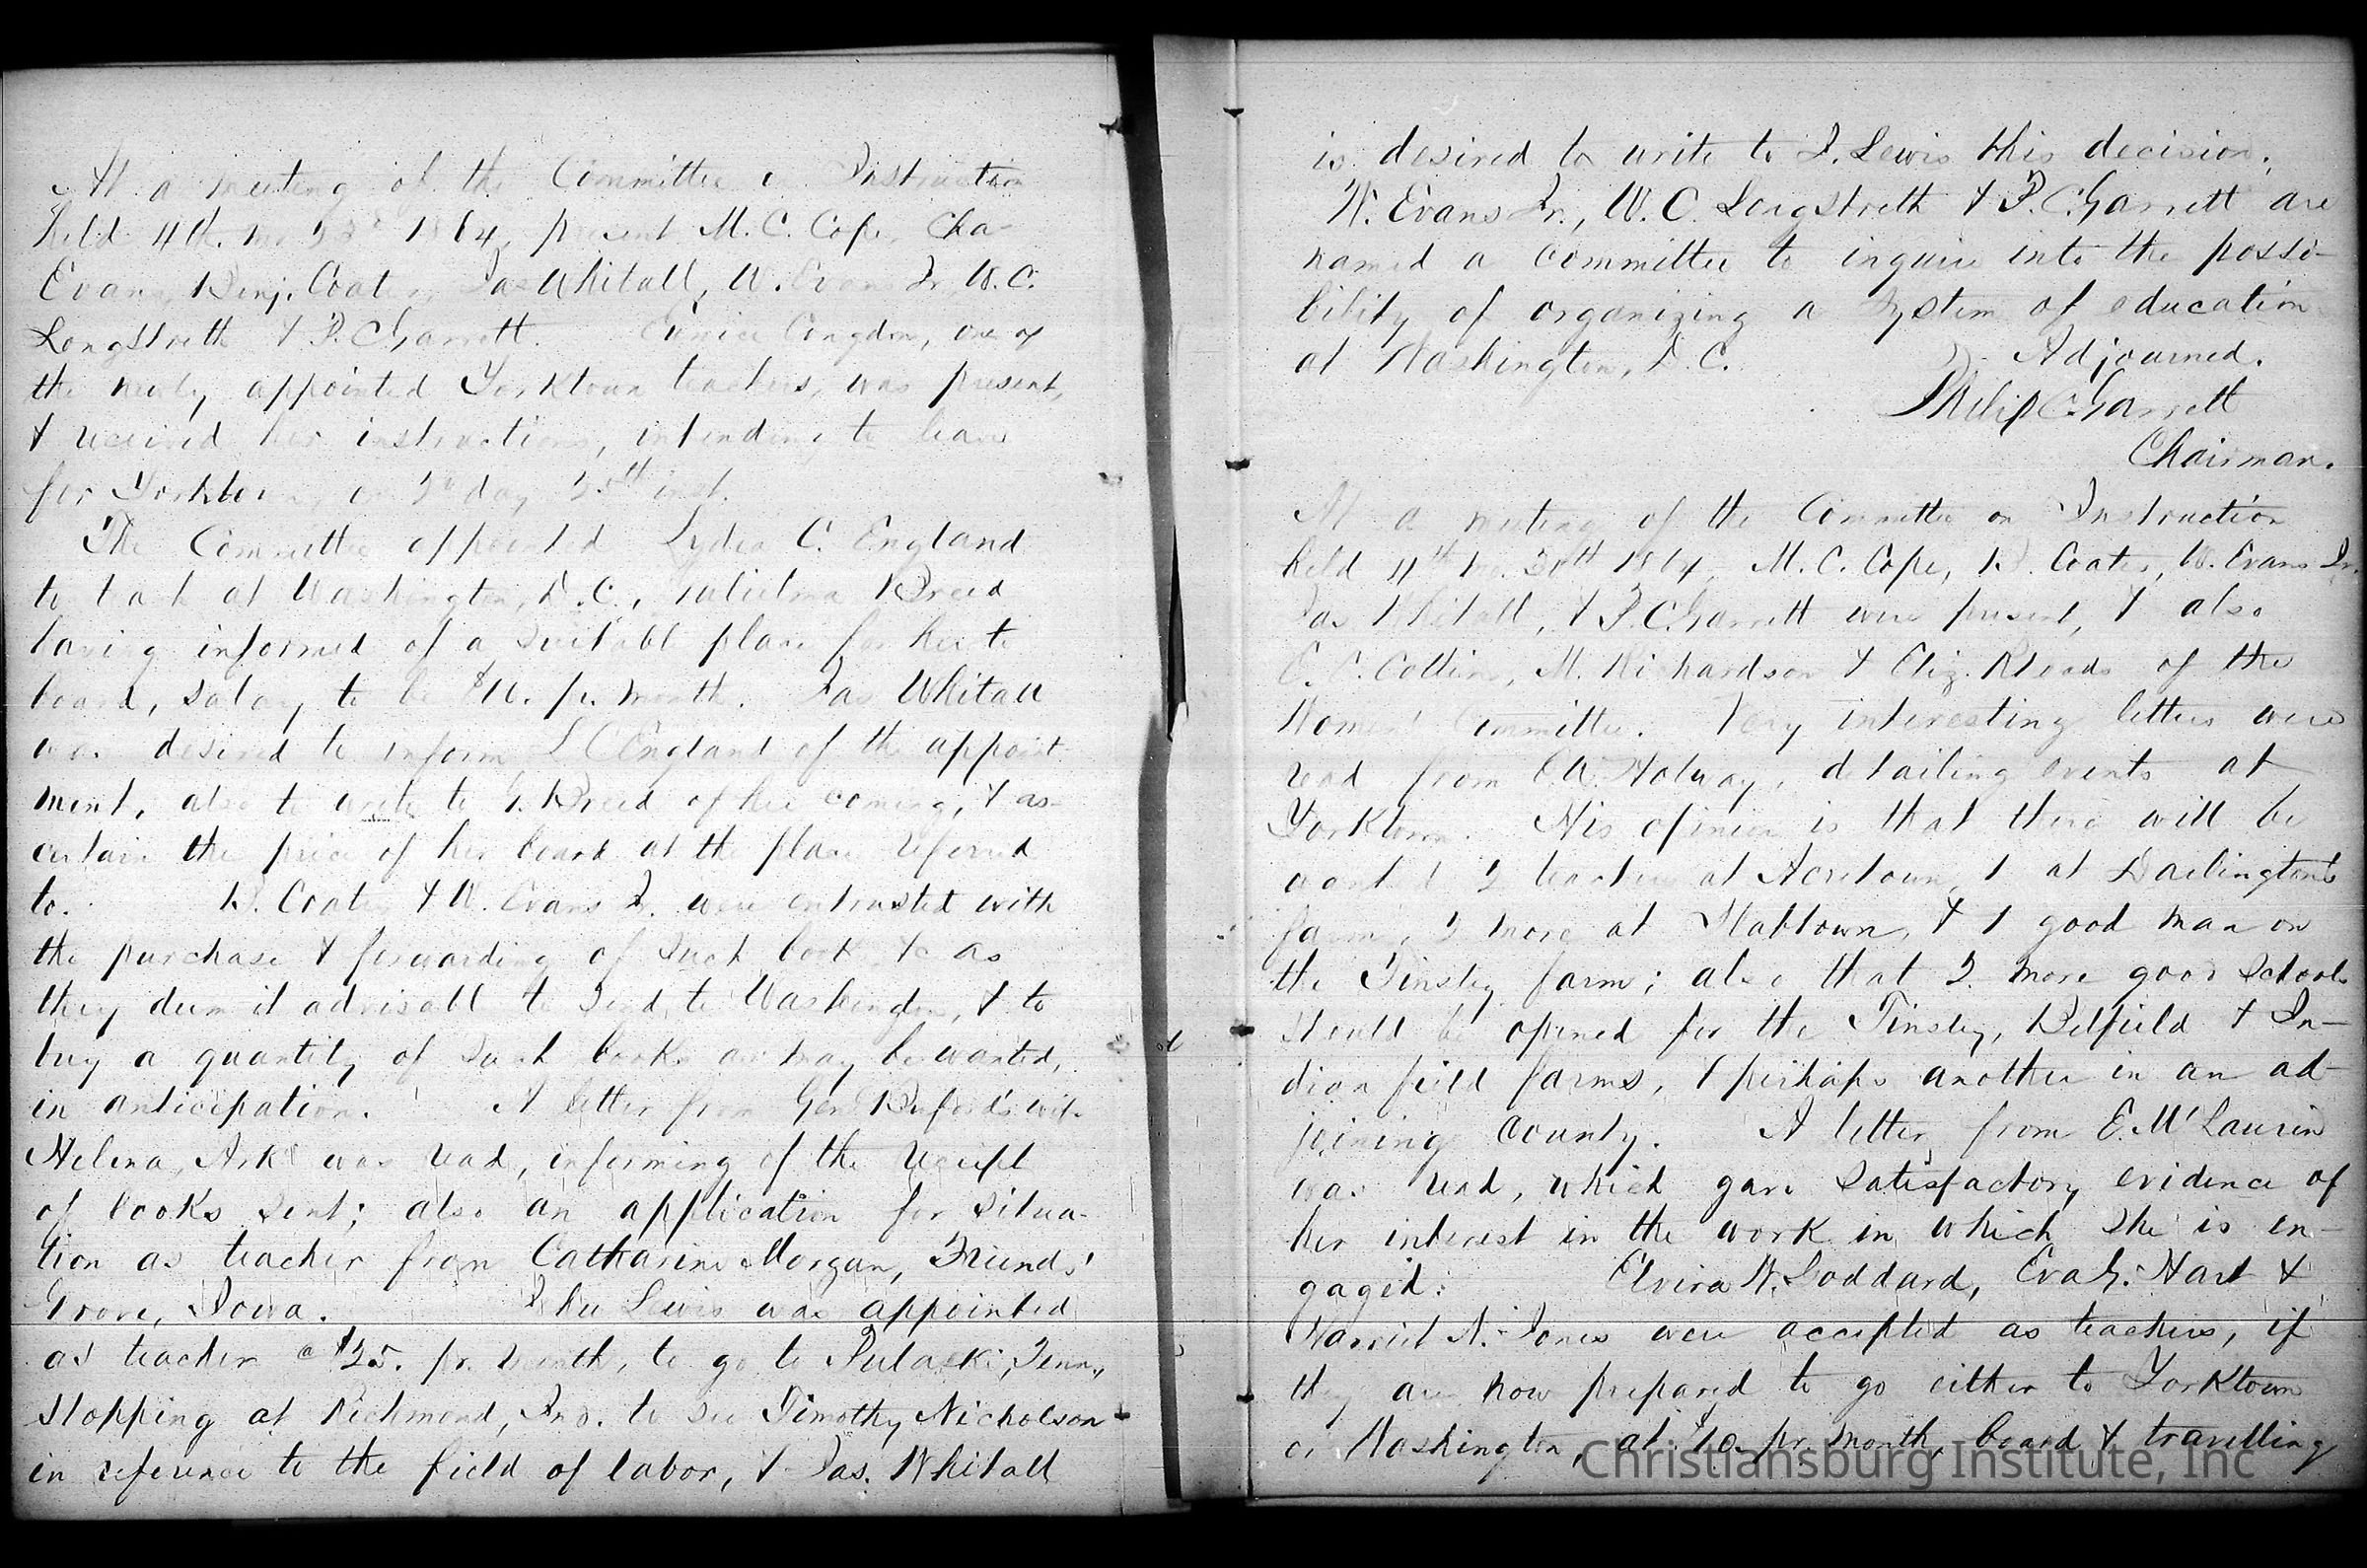 At a meeting of the Committee on Instruction
held 4th. mo 23d 1864, present M. C. Cope, Chas
Evans, Benj. Coates, Jas Whitall, W. Evans Jr, W. C.
Longstreth & P. C. Garrett. Eunice Congdon, one of
the newly appointed Yorktown teachers, was present,
& received her instructions, intending to leave
for Yorktown, on 2d day 25th inst.
The Committee appointed Lydia C. England
to teach at Washington, D.C., Gulielma Breed
having informed of a suitable place for her to
board, salary to be $ pr. month. Jas Whitall
was desired to inform L C England of the appoint-
ment, also to write to G. Breed of her coming, & as-
certain the price of her board at the place referred
to. B. Coates & W. Evans Jr. were entrusted with
the purchase & forwarding of such books &c as
they deem it advisable to send to Washington, & to
buy a quantity of such books as may be wanted,
in anticipation. A letter from Gen Buford's wife
Helena, Arks was read, informing of the receipt
of books sent; also an application for situa-
tion as teacher from Catharine Morgan, Friends'
Grove, Iowa. John Lewis was appointed
as teacher @ $25. pr. month, to go to Pulaski, Tenn.,
stopping at Richmond, Ind. to see Timothy Nicholson
in reference to the field of labor, & Jas. Whitall
is desired to write to J. Lewis this decision.
W. Evans Jr., W. C. Longstreth & P. C. Garrett are
named a committee to inquire into the possi-
bility of organizing a system of education
at Washington, D. C. Adjourned.
Philip C. Garrett
Chairman.
At a meeting of the Committee on Instruction
held 4th mo. 30th 1864, M. C. Cope, B. Coates, W. Evans Jr.
Jas Whitall, & P. C. Garrett were present, & also
E. C. Collins, M. Richardson & Eliz. Rhoads of the
Women's Committee. Very interesting letters were
read from Holway, detailing events at
Yorktown. His opinion is that there will be
wanted 2 teachers at Acretown, 1 at Darlington's
farm, 2 more at Slabtown, & 1 good man on
the Tinsley farm; also that 2 more good schools
should be opened for the Tinsley, Belfield & In-
dian field farms, & perhaps another in an ad-
joining county. A letter from E. McLaurin
was read, which gave satisfactory evidence of
her interest in the work in which she is en-
gaged. Elvira W. Goddard, Eva G. Hart &
Harriet N. Jones were accepted as teachers, if
they are now prepared to go either to Yorktown
or Washington, at $10. pr. month, board & travelling
Christiansburg Institute, Inc